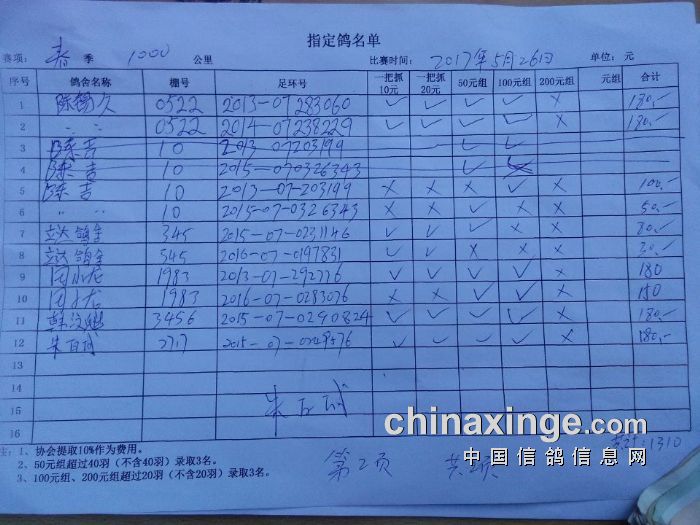 指定鸽名单
赛项： 春 季 1000 公里 比赛时间： 2017年5月26日 单位：元
序号 鸽舍名称 棚号 足环号 一把抓10元 一把抓20元 50元组 100元组 200元组 元组 合计
1 0522 2013-07283060 ✓ ✓ ✓ ✓ × 180.-
2 〃 〃 0522 2014-07238229 ✓ ✓ ✓ ✓ × 180.-
3 陈吉 10 2013-07203199 ✓ ✓
4 陈吉 10 2015-070326343 ✓
5 陈吉 10 2013-07-203199 × × × ✓ × 100.-
6 〃 〃 10 2015-07-0326343 × × ✓ × × 50.-
7 立达鸽舍 345 2015-07-0231146 ✓ ✓ ✓ × × 80.-
8 立达鸽舍 545 2016-07-0197831 ✓ ✓ × × × 30.-
9 1983 2013-07-292776 ✓ ✓ ✓ ✓ × 180
10 1983 2016-07-0283076 × × ✓ ✓ × 150
11 3456 2015-07-0290824 ✓ ✓ ✓ ✓ × 180.-
12 朱百成 2717 2015-07-0249576 ✓ ✓ ✓ ✓ × 180.-
13
14
15 朱百成
16
共计:1310
注：1、协会提取10%作为费用。
2、50元组超过40羽（不含40羽）录取3名。
3、100元组、200元组超过20羽（不含20羽）录取3名。
第2页 共 页
chinaxinge.com
中国信鸽信息网